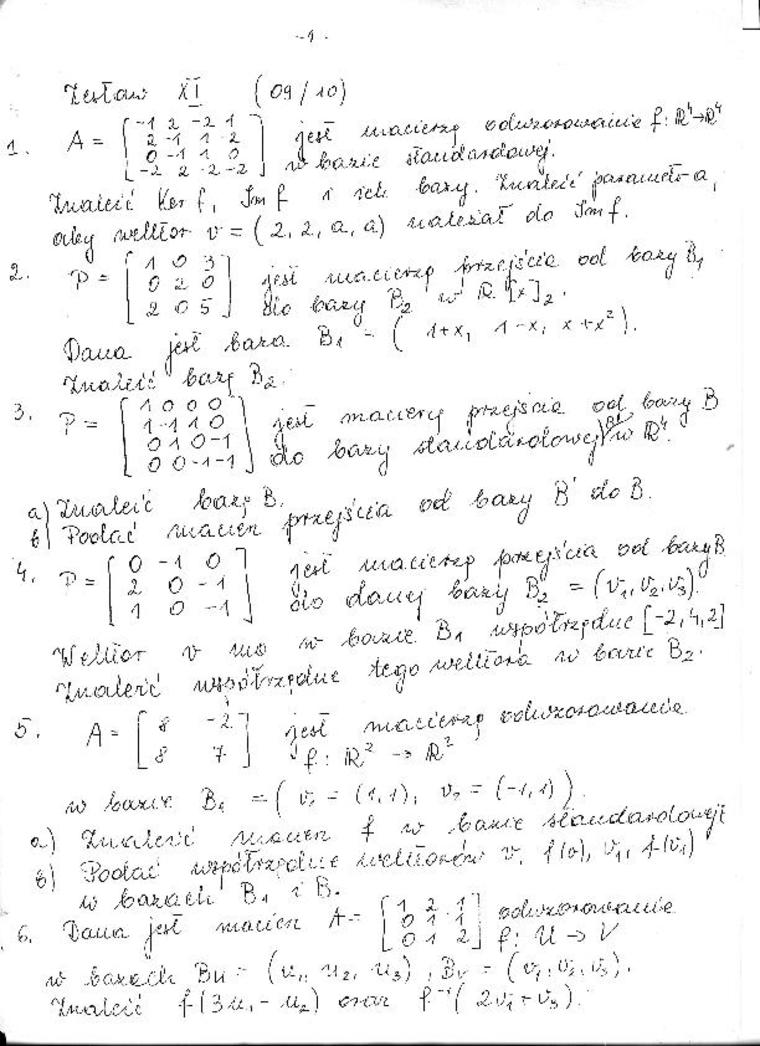 -1-
Zestaw XI (09/10)
1. A = [-1 2 -2 1; 2 -1 1 -2; 0 -1 1 0; -2 2 -2 -2] jest macierzą odwzorowania f: ℝ⁴→ℝ⁴
w bazie standardowej.
Znaleźć Ker f, Im f i ich bazy. Znaleźć parametr a,
aby wektor v = (2, 2, a, a) należał do Im f.
2. P = [1 0 3; 0 2 0; 2 0 5] jest macierzą przejścia od bazy B₁
do bazy B₂ w ℝ[x]₂.
Dana jest baza B₁ = (1+x, 1-x, x+x²).
Znaleźć bazę B₂.
3. P = [1 0 0 0; 1 -1 1 0; 0 1 0 -1; 0 0 -1 -1] jest macierzą przejścia od bazy B
do bazy standardowej B' w ℝ⁴.
a) Znaleźć bazę B.
b) Podać macierz przejścia od bazy B' do B.
4. P = [0 -1 0; 2 0 -1; 1 0 -1] jest macierzą przejścia od bazy B₁
do danej bazy B₂ = (v₁, v₂, v₃).
Wektor v ma w bazie B₁ współrzędne [-2, 4, 2]
Znaleźć współrzędne tego wektora w bazie B₂.
5. A = [8 -2; 8 7] jest macierzą odwzorowania
f: ℝ² → ℝ²
w bazie B₁ = (v₁ = (1,1), v₂ = (-1,1)).
a) Znaleźć macierz f w bazie standardowej
b) Podać współrzędne wektorów v, f(v), v₁, f(v₁)
w bazach B₁ i B.
6. Dana jest macierz A = [1 2 1; 0 1 1; 0 1 2] odwzorowania
f: U → V
w bazach Bu = (u₁, u₂, u₃), Bv = (v₁, v₂, v₃).
Znaleźć f(3u₁ - u₂) oraz f⁻¹(2v₁ - v₃).